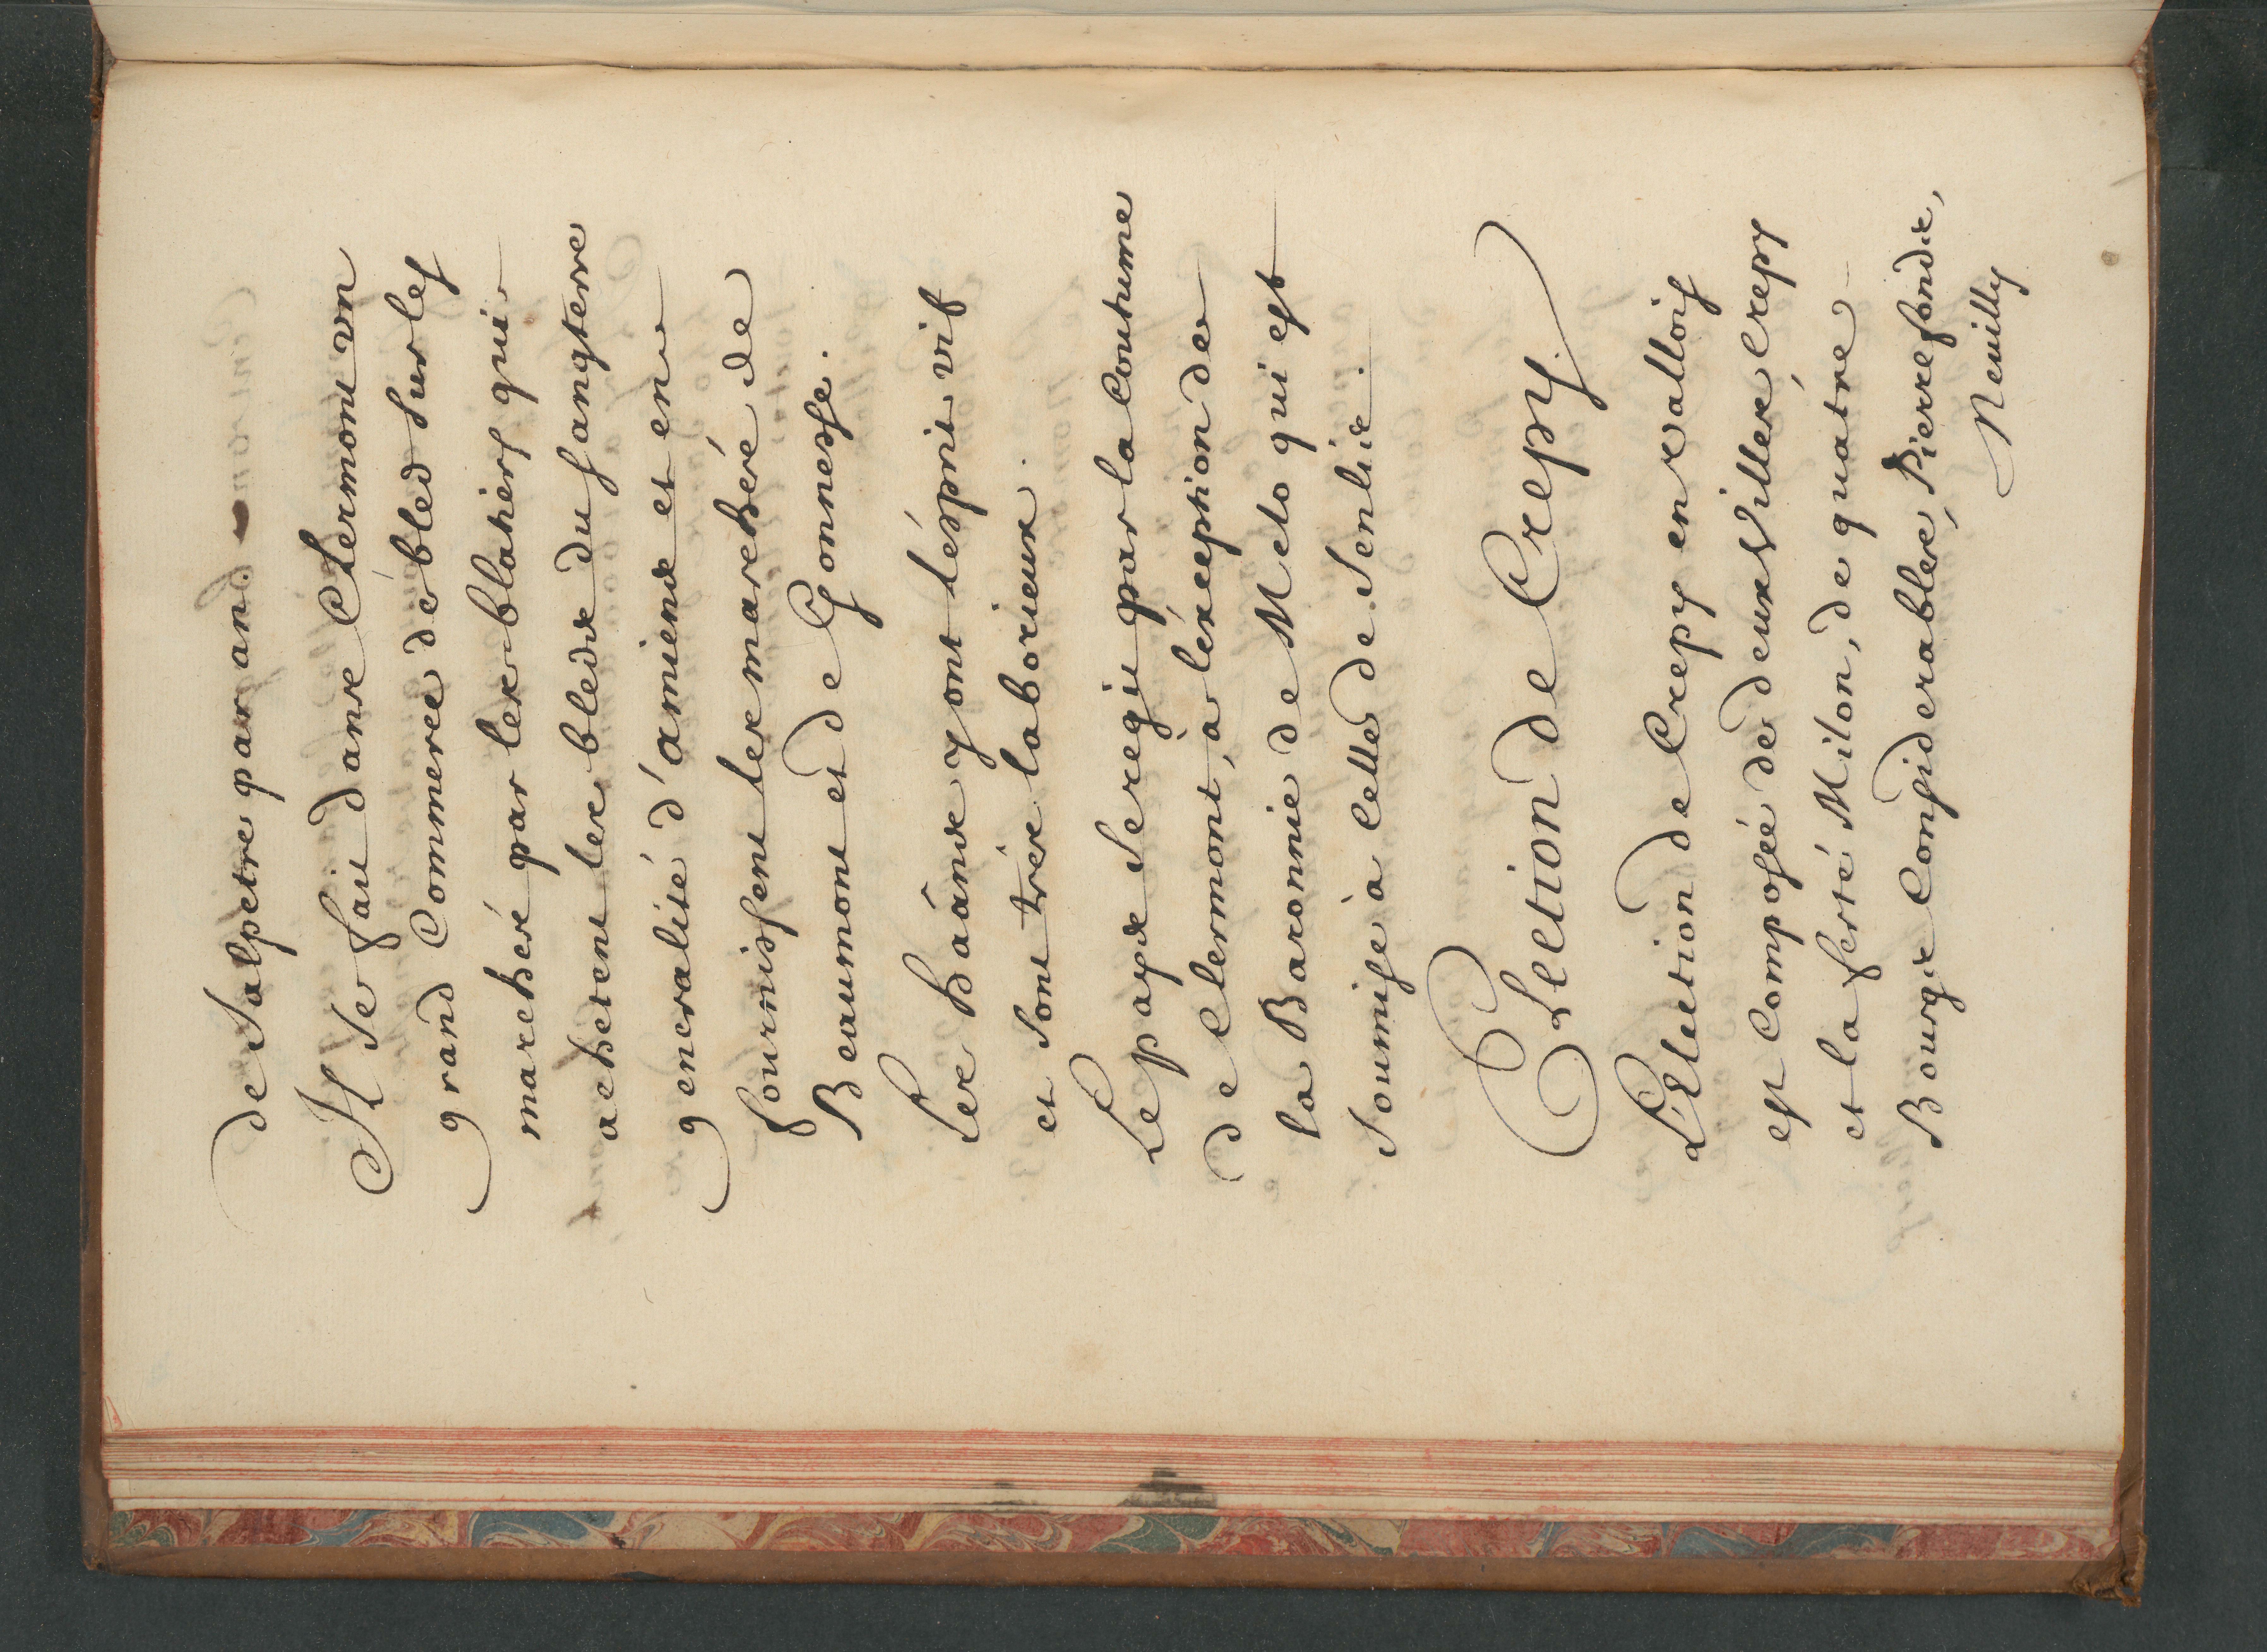 de Salpetre par an.
Il se fait dans Clermont vn
grand Commerce de bled sur les
marchés par les blatiers qui
achetent les bleds du Sangterre
generalité d'amiens et en
fournissent les marchés de
Beaumont et de Gonnesse.
Les hâans y ont l'ésprit vif
et sont trés laborieux.
Le pays se regit par la Coutume
de Clermont, a l'éxception de
la Baronnie de Melo qui est
soumise à Celle de Senlis.
Election de Crepy.
L'Election de Crepy en valloiss
est Composée de deux Villes, Crepy
et la ferté Milon, de quatre
Bourgs Considerables, Pierrefonds,
Neuilly